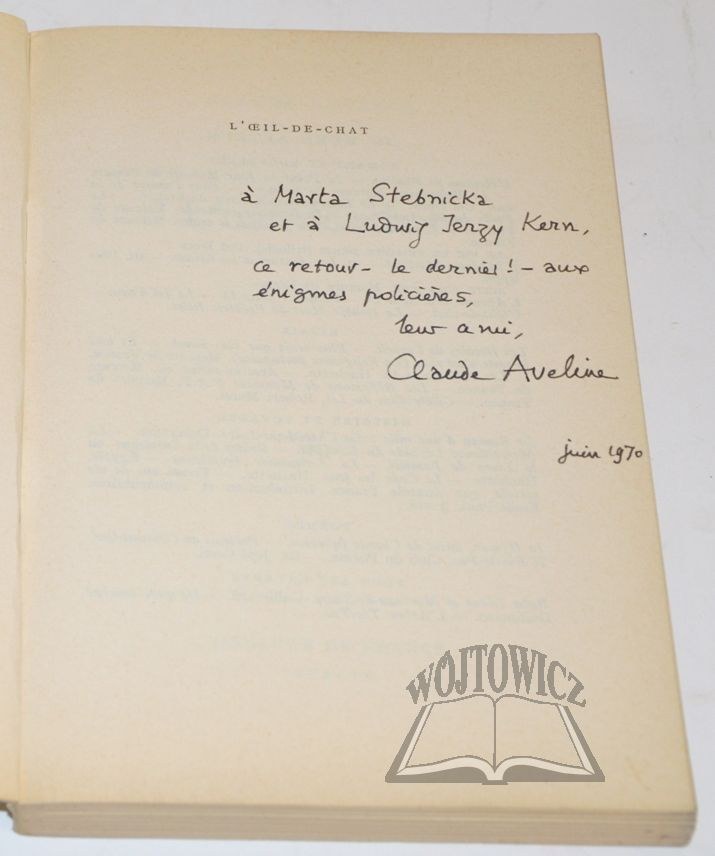 L'ŒIL-DE-CHAT
à Marta Stebnicka
et à Ludwig Jerzy Kern,
ce retour – le dernier! – aux
énigmes policières,
leur ami,
Claude Aveline
juin 1970
WÓJTOWICZ